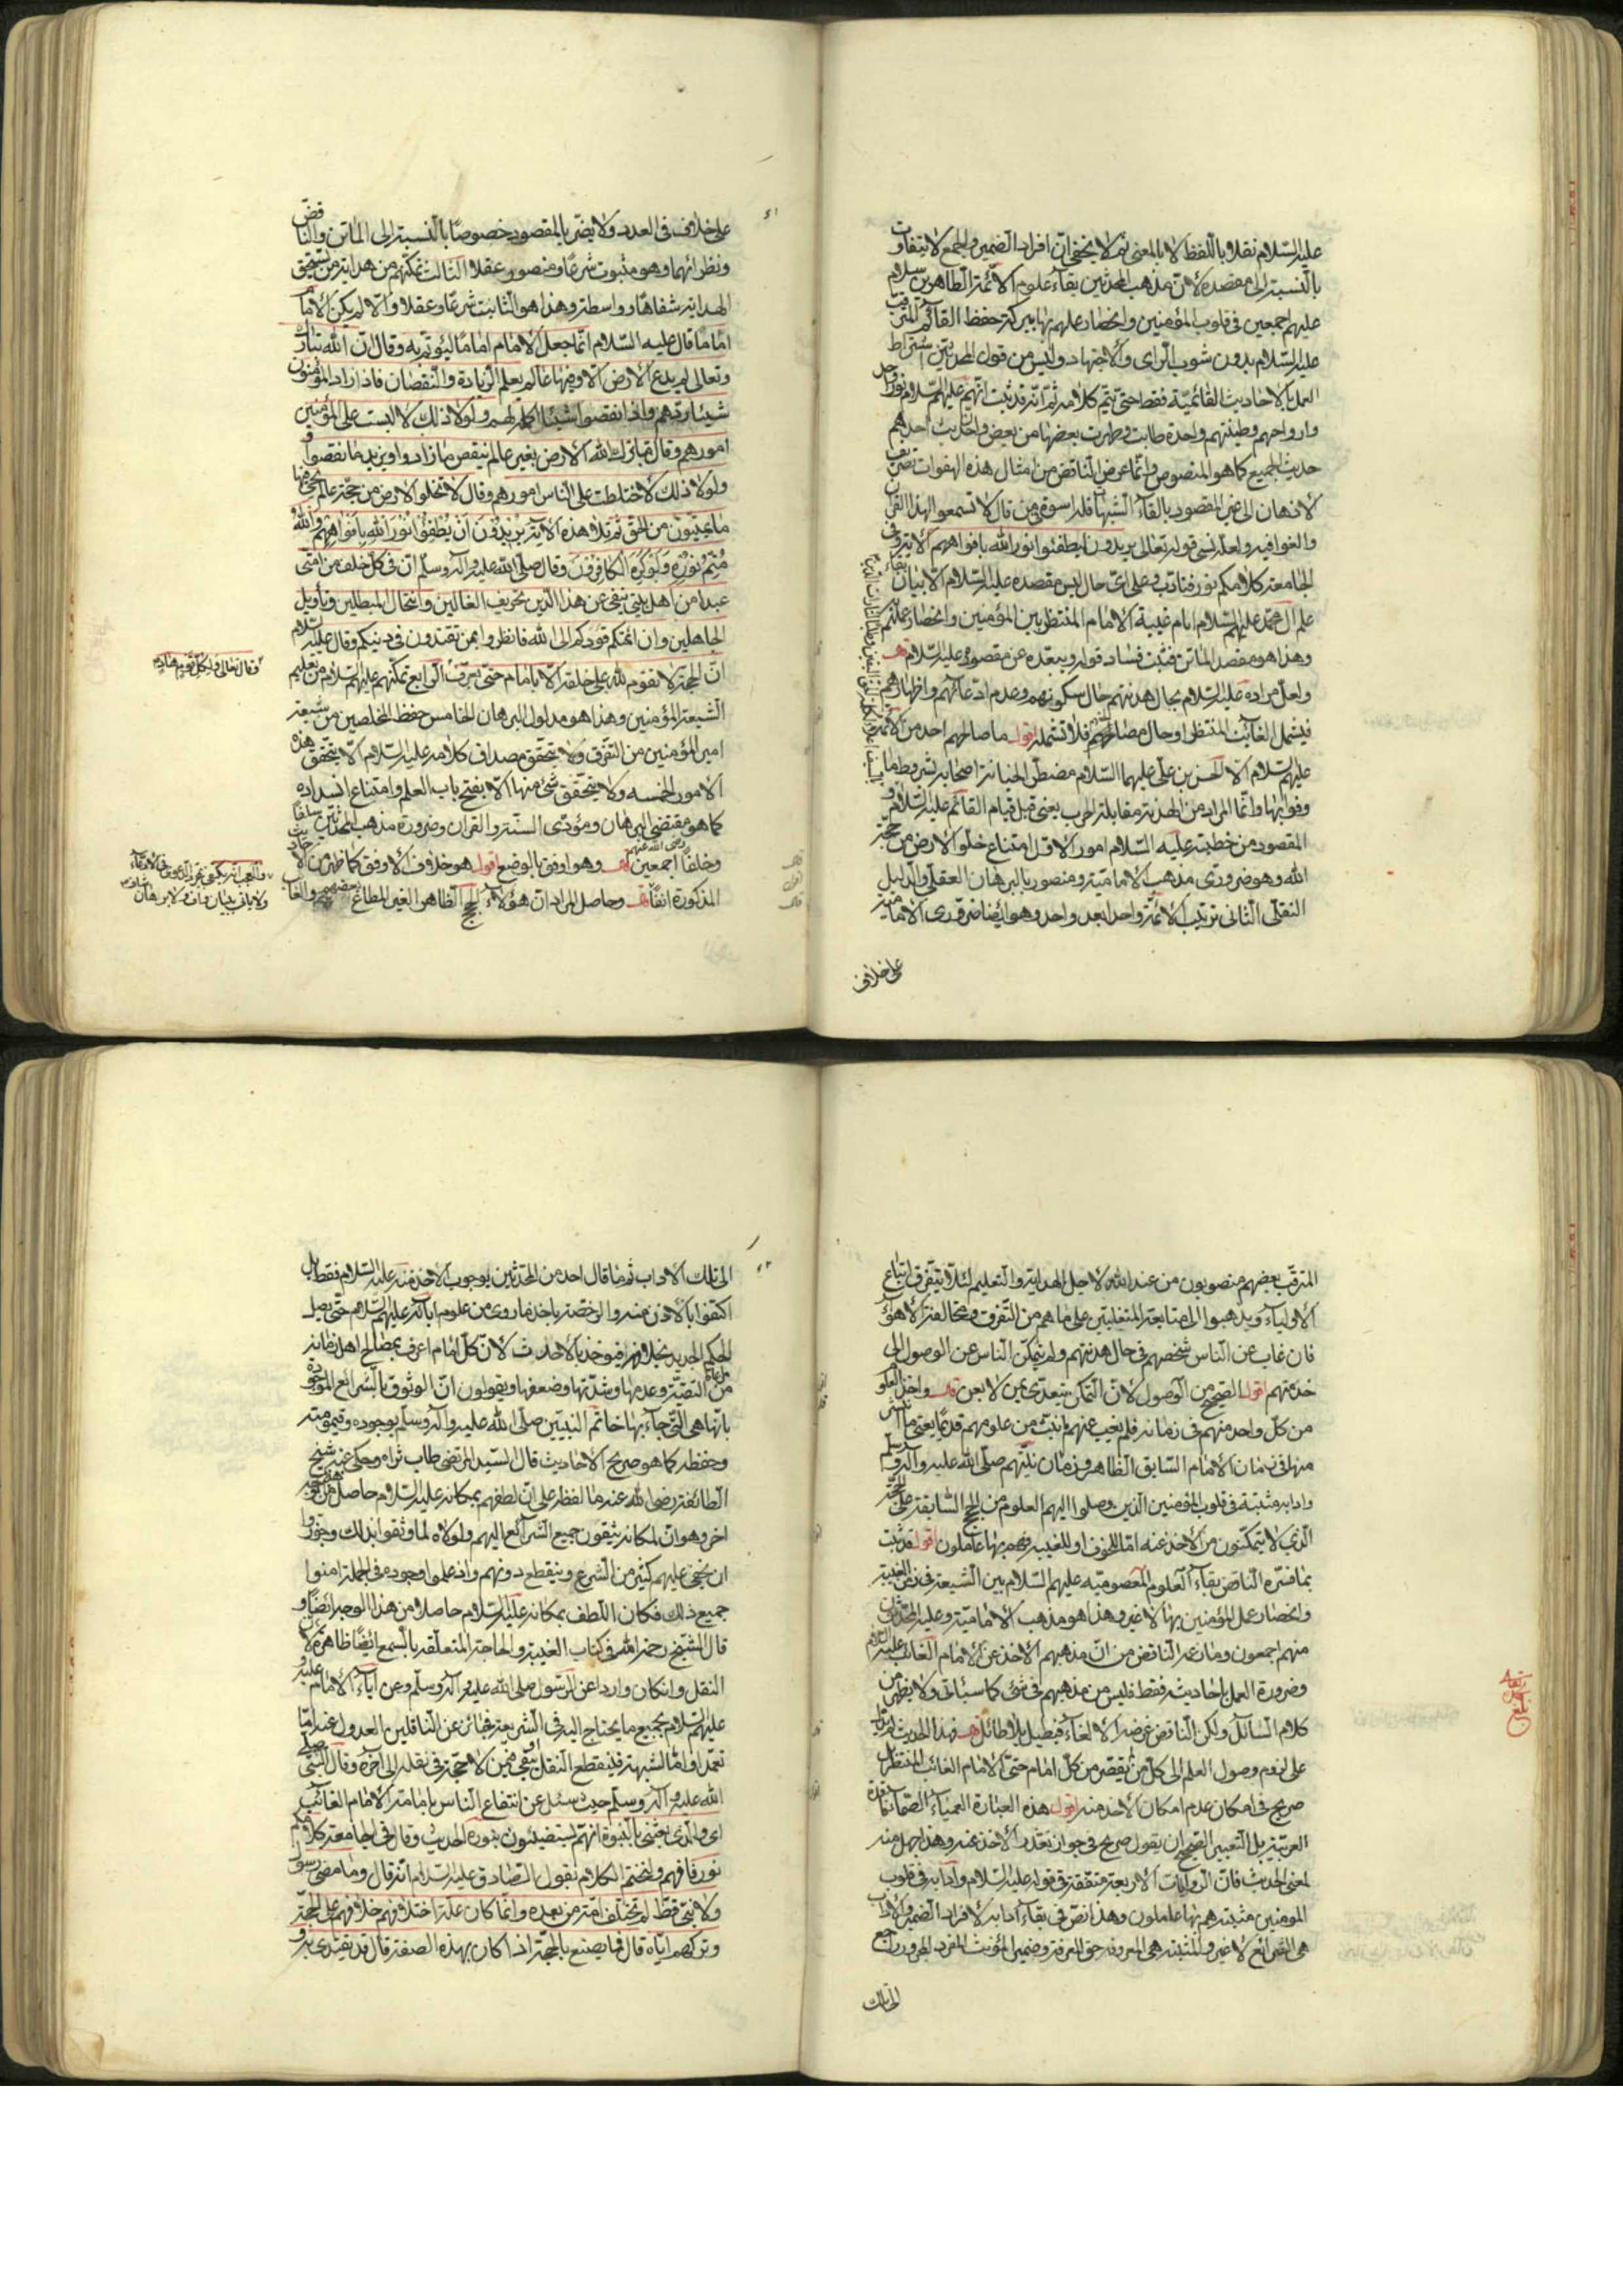 عليه السلام نقلا باللفظ لا بالمعنى ثم لا يخفى ان افراد الضمير والجمع لا يتفاوت
بالنسبة الى مقصده لان مذهب المحدثين بقاء علوم الائمة الطاهرين سلام
عليهم اجمعين في قلوب المؤمنين وانحصار علمهم بها ببركة حفظ القائم المترقب
عليه السلام بدون شوب الراى والاجتهاد وليس من قول المحدثين اشتراط
العمل بالاحاديث القائمية فقط حتى يتم كلامه ثم انه قد ثبت انهم عليهم السلام نور واحد
وارواحهم وطينتهم واحدة طابت وطهرت بعضها من بعض وان حديث احدهم
حديث الجميع كما هو المنصوص وانما غرض الناقض من امثال هذه الهفوات تصريف
الاذهان الى غير المقصود بالقاء الشبهات فله اسوة من قال لا تسمعوا لهذا القران
والغوا فيه ولعله نسى قوله تعالى يريدون ليطفئوا نور الله بافواههم الاية وفي
الجامعة كلامكم نور فتادب وعلى اى حال ليس مقصده عليه السلام الا بيان بقاء
علم ال محمد عليهم السلام ايام غيبة الامام المنتظر بين المؤمنين وانحصار علمهم
وهذا هو مقصد الماتن فثبت فساد قوله ويبعده عن مقصوده عليه السلام قلت
ولعل مراده عليه السلام بحال هدنتهم حال سكونهم وعدم ادعائهم واظهارهم
فيشمل الغائب المنتظر او حال مصالحتهم فلا تشمله اقول ما صالحهم احد من الائمة
عليهم السلام الا الحسن بن علي عليهما السلام مضطرا لخيانة اصحابه بشروط ما
وفوا بها وانما المراد من الهدنة مقابلة الحرب يعنى قبل قيام القائم عليه السلام و
المقصود من خطبته عليه السلام امور الاول امتناع خلو الارض من حجة
الله وهو ضرورى مذهب الامامية ومنصور بالبرهان العقلى والدليل
النقلى الثانى ترتيب الائمة واحدا بعد واحد وهو ايضا ضرورى الامامية
على خلاف
على خلاف في العدد ولا يضر بالمقصود خصوصا بالنسبة الى الماتن والناقض
ونظرائهما وهو مثبوت شرعا ومنصور عقلا الثالث تمكنهم من هداية من يستحق
الهداية شفاها او واسطة وهذا هو الثابت شرعا وعقلا والا لم يكن الامام
اماما قال عليه السلام انما جعل الامام اماما ليؤتم به وقال ان الله تبارك
وتعالى لم يدع الارض الا وفيها عالم يعلم الزيادة والنقصان فاذا زاد المؤمنون
شيئا ردهم واذا نقصوا شيئا اكمله لهم ولولا ذلك لالتبست على المؤمنين
امورهم وقال ما ترك الله الارض بغير عالم ينقص ما زادوا ويزيد ما نقصوا و
ولولا ذلك لاختلطت على الناس امورهم وقال لا تخلوا الارض من حجة عالم يحيى فيها
ما يميتون من الحق ثم تلا هذه الاية يريدون ان يطفئوا نور الله بافواههم والله
متم نوره ولو كره الكافرون وقال صلى الله عليه واله وسلم ان في كل خلف من امتى
عبدا من اهل بيتى ينفى عن هذا الدين تحريف الغالين وانتحال المبطلين وتأويل
الجاهلين وان ائمتكم قودكم الى الله فانظروا بمن تقتدون في دينكم وقال عليه السلام
وقال تعالى ولكل قوم هاد
ان الحجة لا تقوم لله على خلقه الا بامام حتى يعرف الرابع تمكنهم عليهم السلام من تعليم
الشيعة المؤمنين وهذا هو مدلول البرهان الخامس حفظ المخلصين من شيعة
امير المؤمنين من التفرق ولا يتحقق مصداق كلامه عليه السلام الا بتحقق هذه
الامور الخمسه ولا يتحقق شئ منها الا بفتح باب العلم وامتناع انسداده
كما هو مقتضى البرهان ومؤدى السنة والقران وضرورة مذهب المحدثين سلفا
وخلفا رضى الله عنهم اجمعين قلت وهو اوفق بالوضع اقول هو خلاف الاوفق كما ظهر من الاحاديث
المذكورة انفا قلت وحاصل المراد ان هؤلاء الحجج الظاهر الغير المطاع بعضهم والغائب
ولا ياتى ببيان واف ولا برهان شاف
المترقب بعضهم منصوبون من عند الله لاجل الهداية والتعليم لئلا يتفرق اتباع
الاولياء ويذهبوا الى متابعة المتغلبين على ما هم من التفرق ومخالفة الاهواء
فان غاب عن الناس شخصهم في حال هدنتهم ولم يتمكن الناس عن الوصول الى
خدمتهم اقول الصحيح من الوصول لان التمكن يتعدى بمن لا بعن قلت واخذ العلم
من كل واحد منهم في زمانه فلم يغب عنهم ما ثبت من علومهم قديما يعنى ما انتشر
منها في زمان الامام السابق الظاهر وزمان نبيهم صلى الله عليه واله وسلم
وادابه مثبتة في قلوب المؤمنين الذين وصلوا اليهم العلوم من الحجج السابقة على الحجة
الذى لا يتمكنون من الاخذ عنه اما للخوف او للغيبه وهم بها عاملون اقول قد ثبت
بما فسره الناقض بقاء العلوم المعصوميه عليهم السلام بين الشيعة في زمن الغيبة
وانحصار عمل المؤمنين بها لا غير وهذا هو مذهب الامامية وعليه المحدثون
منهم اجمعون وما زعمه الناقض من ان مذهبهم الاخذ عن الامام الغائب عليه السلام
وضرورة العمل باحاديثه فقط فليس من مذهبهم في شئ كما سيأتى ولا يظهر من
كلام السائل ولكن الناقض غرضه الالغاء فيطيل بلا طائل قلت فهذا الحديث لم يدل
على لزوم وصول العلم الى كل من يقصر من كل امام حتى الامام الغائب المنتظر بل
صريح في امكان عدم امكان الاخذ منه اقول هذه العبارة العمياء الصماء فاقدة
العربية بل التعبير الصحيح ان يقول صريح في جواز تعذر الاخذ عنه وهذا جهل منه
لمعنى الحديث فان الروايات الاربعة متفقة في قوله عليه السلام وادابه في قلوب
المومنين مثبتة هم بها عاملون وهذا نص في بقاء ادابه لافراد الضمير والاداب
هى الشرائع لا غير والمثبته هى المعروفه حق المعرفة وضمير المؤنث المفرد المجرور راجع
الى تلك
الى تلك الاداب ثم ما قال احد من المحدثين بوجوب الاخذ منه عليه السلام فقط بل
اكتفوا بالاذن منه والرخصة باخذ ما روى من علوم ابائه عليهم السلام حتى يصل
الحكم الجديد بخلافه فيؤخذ بالاحدث لان كل امام اعرف بمصالح اهل زمانه
من مراعاة التقية وعدمها وشدتها وضعفها ويقولون ان الوثوق بالشرائع الموجودة
بانها هى التى جاء بها خاتم النبيين صلى الله عليه واله وسلم بوجوده وقيموميته
وحفظه كما هو صريح الاحاديث قال السيد المرتضى طاب ثراه وحكى عنه شيخ
الطائفة رضى الله عنه ما لفظه على ان لطفهم بمكانه عليه السلام حاصل من وجه
اخر وهو ان لمكانه يثقون جميع الشرائع اليهم ولولاه لما وثقوا بذلك وجوزوا
ان يخفى عليهم كثير من الشرع وينقطع دونهم واذ علموا وجوده في الجملة امنوا
جميع ذلك فكان اللطف بمكانه عليه السلام حاصلا من هذا الوجه ايضا و
قال الشيخ رحمه الله في كتاب الغيبة والحاجة المتعلقه بالسمع ايضا ظاهرة لان
النقل وان كان واردا عن الرسول صلى الله عليه واله وسلم وعن اباء الامام عليه و
عليهم السلام بجميع ما يحتاج اليه في الشريعة فجائز عن الناقلين العدول عنه اما
تعمدا واما لشبهة فينقطع النقل او يبقى فيمن لا حجة في نقله الى اخره وقال النبى صلى
الله عليه واله وسلم حيث سئل عن انتفاع الناس بامامة الامام الغائب
اى والذى بعثنى بالنبوة انهم ليستضيئون بنوره الحديث وقال في الجامعة كلامكم
نور فافهم ولنختم الكلام بقول الصادق عليه السلام انه قال وما مضى رسول
ولا نبى قط لم تختلف امته من بعده وانما كان علة اختلافهم خلافهم على الحجة
وتركهم اياه قال فما يصنع بالحجة اذا كان بهذه الصفة قال قد يقتدى به و